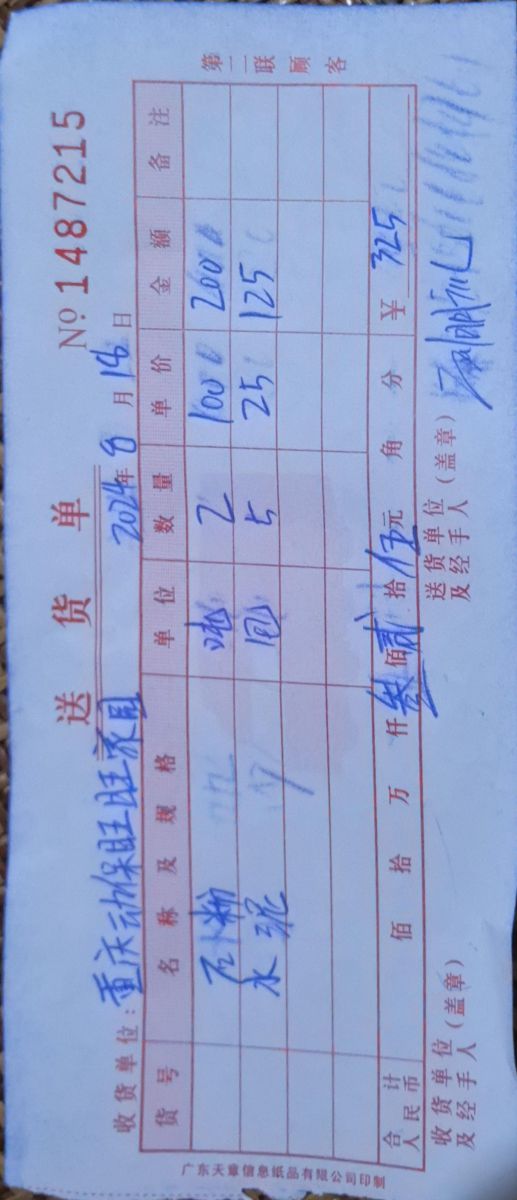 送 货 单
№ 1487215
收货单位：重庆动保旺旺家园 2024年 8 月 18 日
货号 名称及规格 单位 数量 单价 金额 备注
石粉 吨 2 100 200
水泥 包 5 25 125
合计人民币 佰 拾 万 仟 叁佰 贰拾 伍元 角 分 ¥ 325
收货单位及经手人（盖章） 送货单位及经手人（盖章）
第二联 顾客
广东天章信息纸品有限公司印制